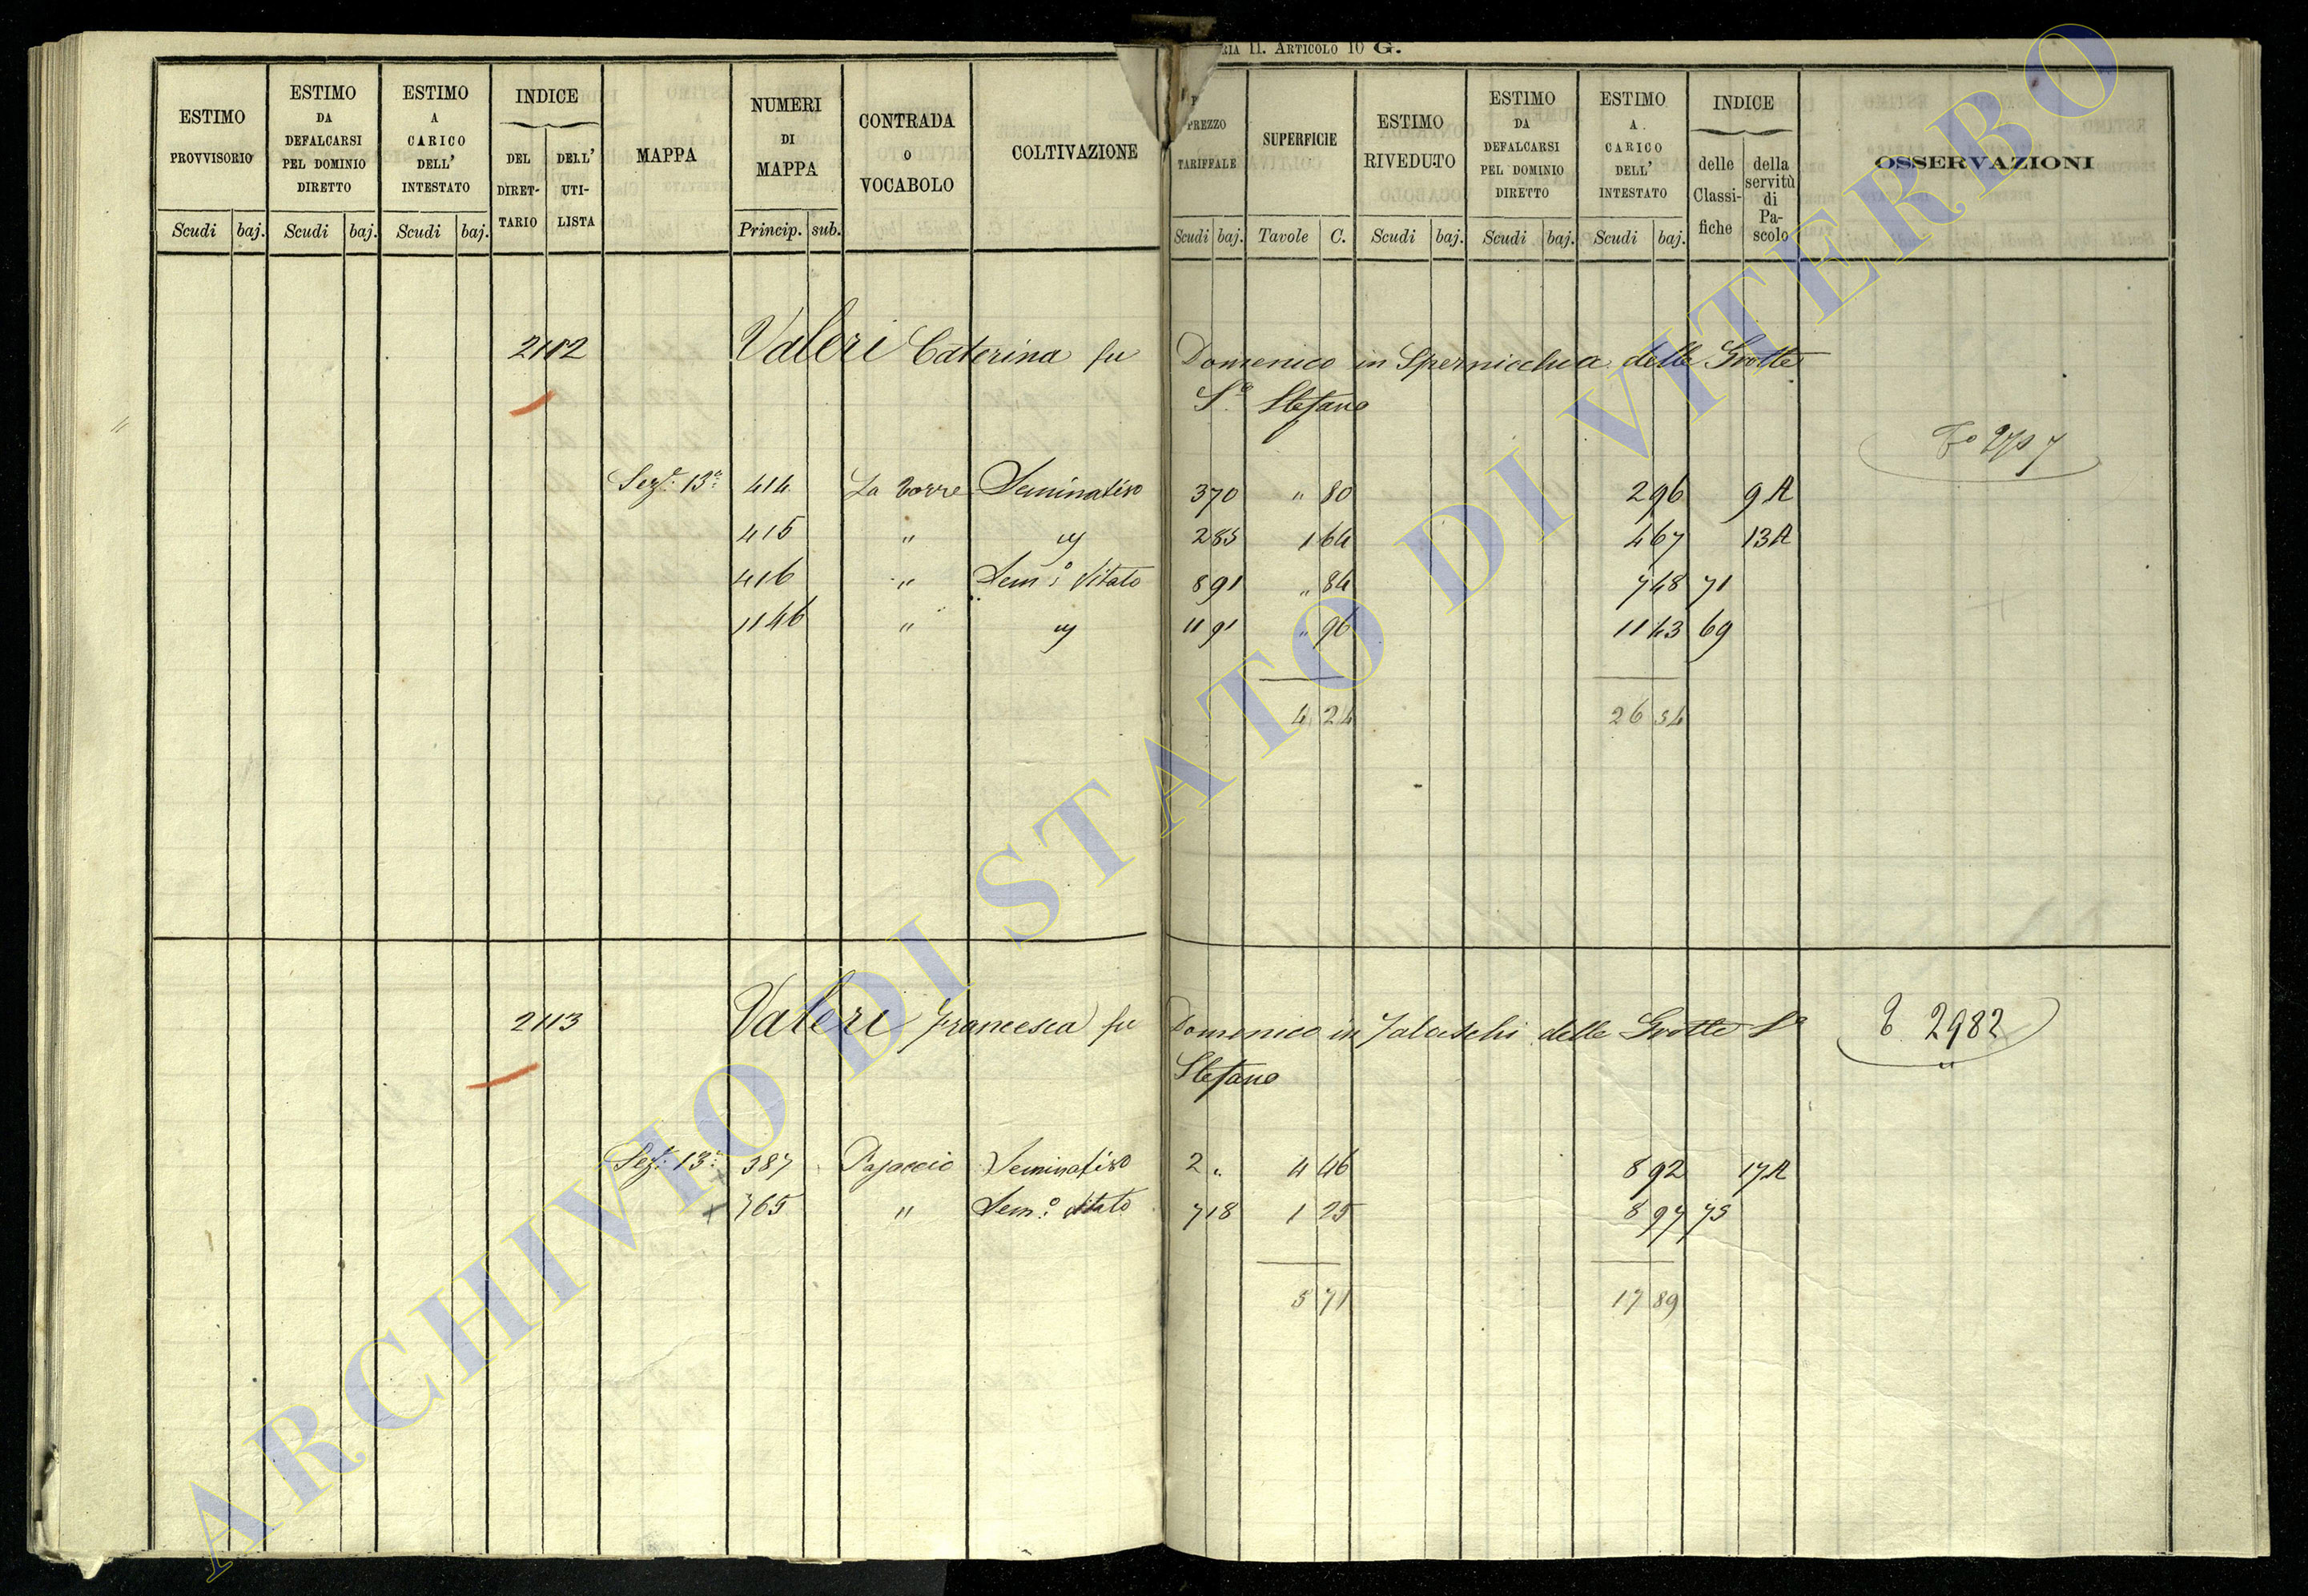 RIA II. ARTICOLO 10 G.
ESTIMO PROVVISORIO
ESTIMO DA DEFALCARSI PEL DOMINIO DIRETTO
ESTIMO A CARICO DELL' INTESTATO
INDICE
DEL DIRET-TARIO
DELL' UTI-LISTA
MAPPA
NUMERI DI MAPPA
CONTRADA O VOCABOLO
COLTIVAZIONE
PREZZO TARIFFALE
SUPERFICIE
ESTIMO RIVEDUTO
ESTIMO DA DEFALCARSI PEL DOMINIO DIRETTO
ESTIMO A CARICO DELL' INTESTATO
INDICE
delle Classi-fiche
della servitù di Pa-scolo
OSSERVAZIONI
Scudi baj. Scudi baj. Scudi baj. Princip. sub. Scudi baj. Tavole C. Scudi baj. Scudi baj. Scudi baj.
2112 Valeri Caterina fu Domenico in Spernicchia delle Grotte
S.o Stefano
Sez.e 13a 414 La Torre Seminativo 3 70 " 80 2 96 9A
415 " " 2 85 1 64 4 67 13A
416 " Sem.o Vitato 8 91 " 84 7 48 71
1146 " " 11 91 " 96 11 43 69
4 24 26 54
2113 Valeri Francesca fu Domenico in Falaschi delle Grotte S.o
Stefano
2982
Sez.e 13a 387 Pajaccio Seminativo 2 " 4 46 8 92 17A
765 " Sem.o Vitato 7 18 1 25 8 97 75
5 71 17 89
ARCHIVIO DI STATO DI VITERBO